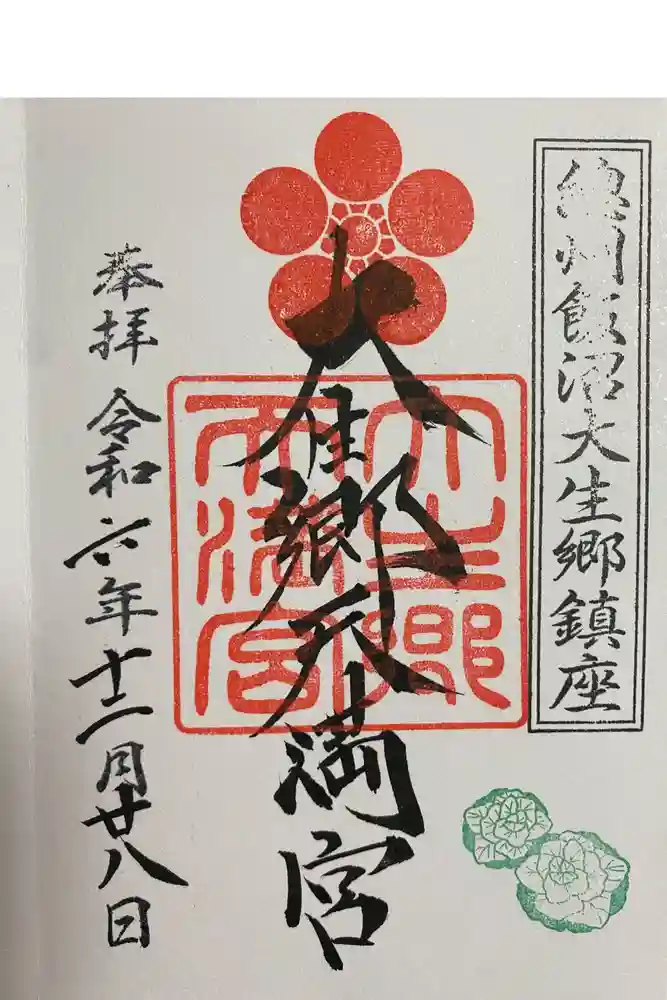 総州飯沼大生郷鎮座
大生郷天満宮
大生郷
天満宮
奉拝 令和六年十二月廿八日